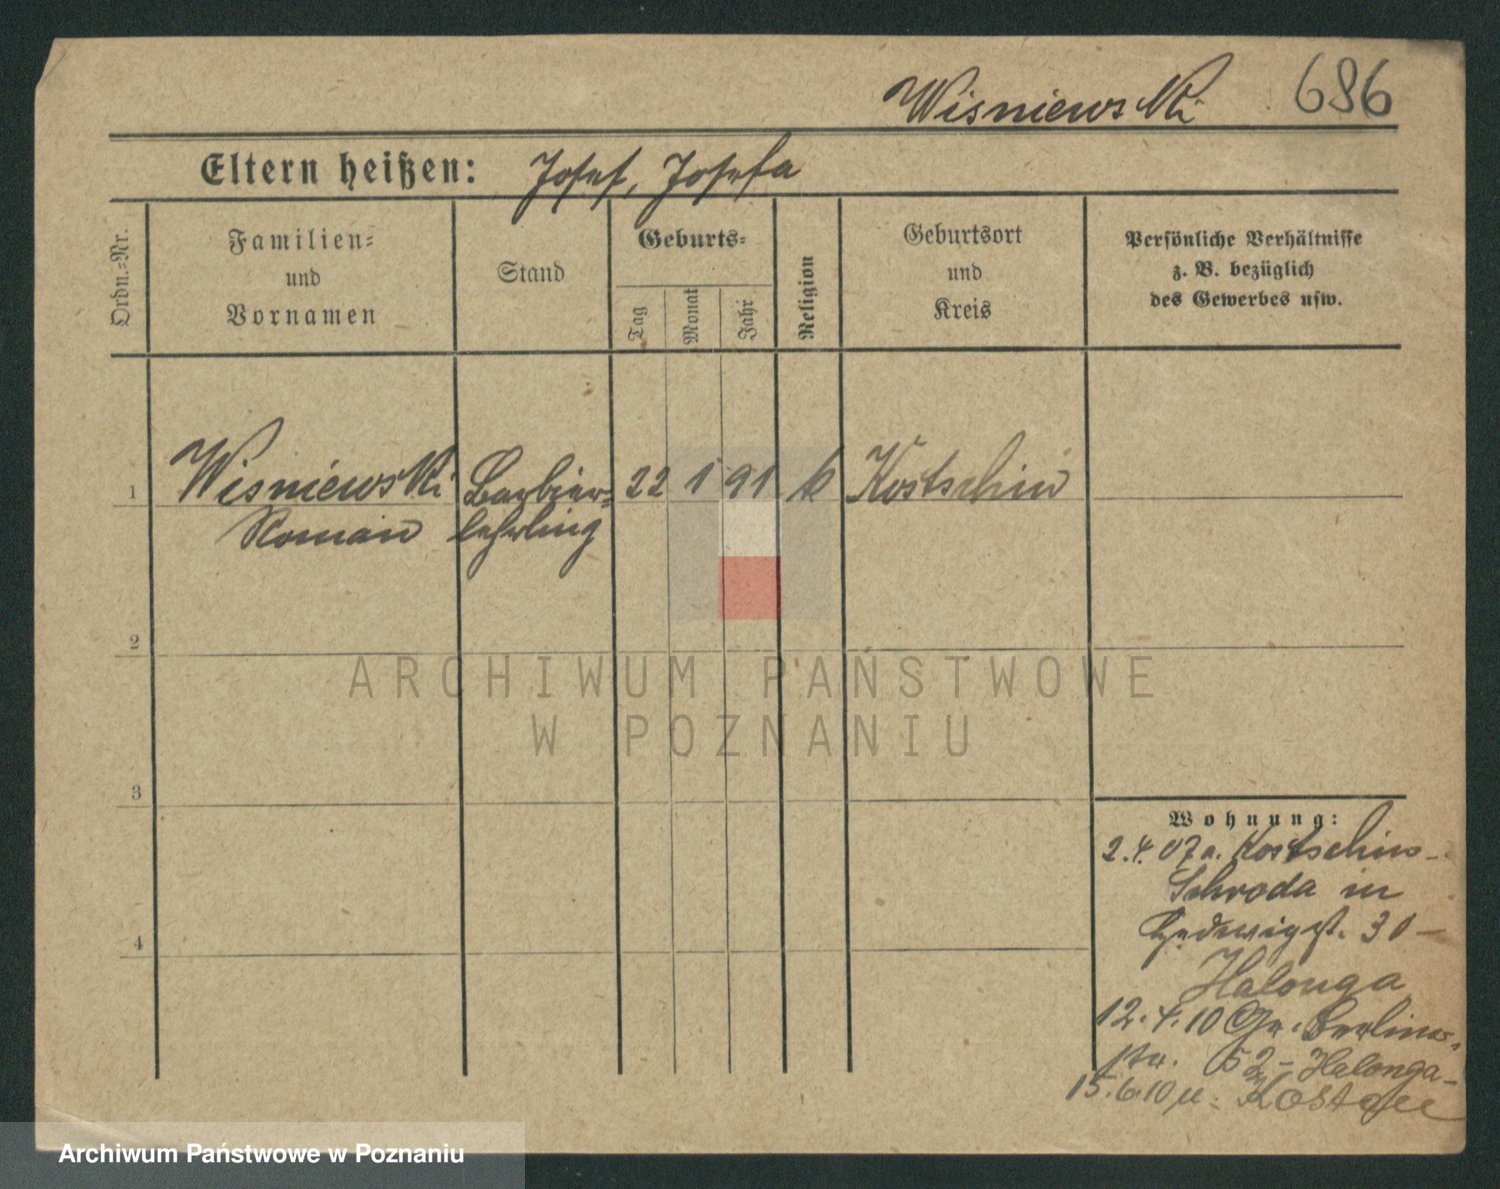 Wisniewski 686
Eltern heißen: Josef, Josefa
Ordn.=Nr.
Familien=
und
Vornamen
Stand
Geburts=
Tag
Monat
Jahr
Religion
Geburtsort
und
Kreis
Persönliche Verhältnisse
z. B. bezüglich
des Gewerbes usw.
1 Wisniewski Barbier= 22 1 91 k Kostschin
Roman lehrling
2
3
4
Wohnung:
2.4.07 a. Kostschin-
Schroda in
Hedwigst. 30 -
Halonga
12.4.10 Gr. Berliner-
str. 52 - Halonga-
15.6.10 n.
ARCHIWUM PAŃSTWOWE
W POZNANIU
Archiwum Państwowe w Poznaniu